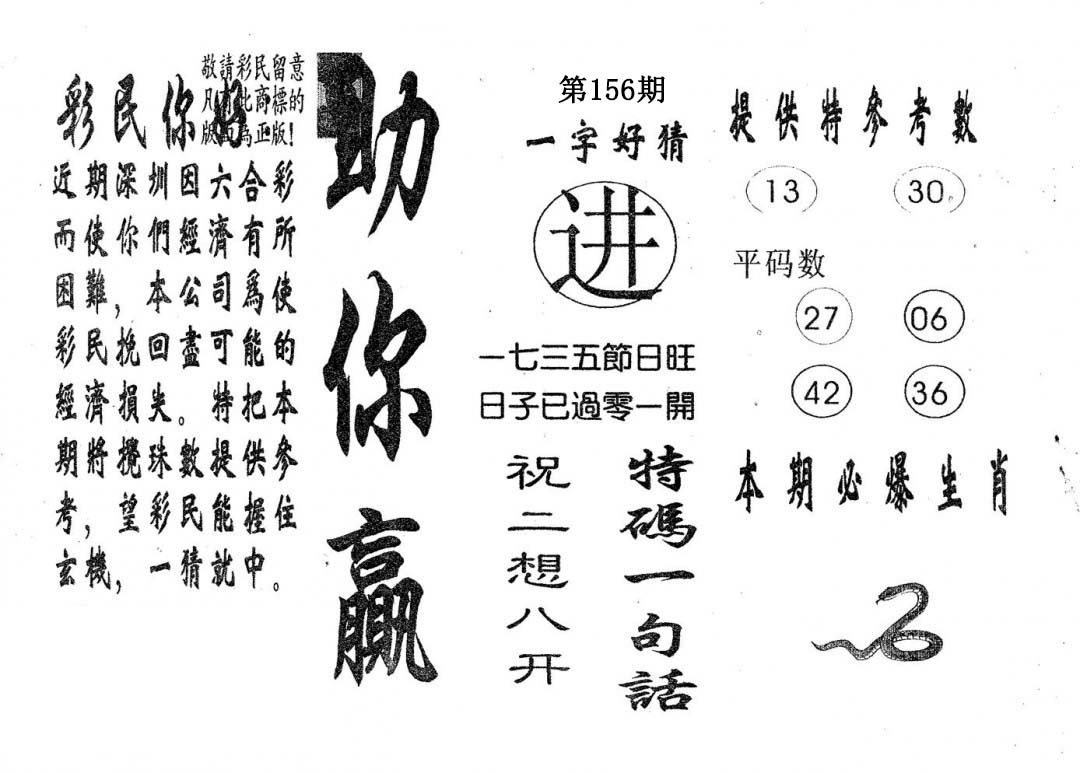 敬請彩民留意
凡有此商標的
版面為正版！
彩民你好
近期深圳因六合彩
而使你們經濟有所
困難，本公司爲使
彩民挽回盡可能的
經濟損失。特把本
期將攪珠數提供參
考，望彩民能握住
玄機，一猜就中。
助你贏
第156期
一字好猜
进
一七三五節日旺
日子已過零一開
特碼一句話
祝二想八开
提供特參考數
13 30
平码数
27 06
42 36
本期必爆生肖